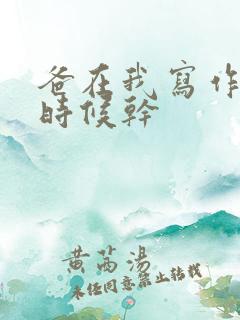 爸在我寫作
時候幹
黄芮湯
未经同意禁止转载